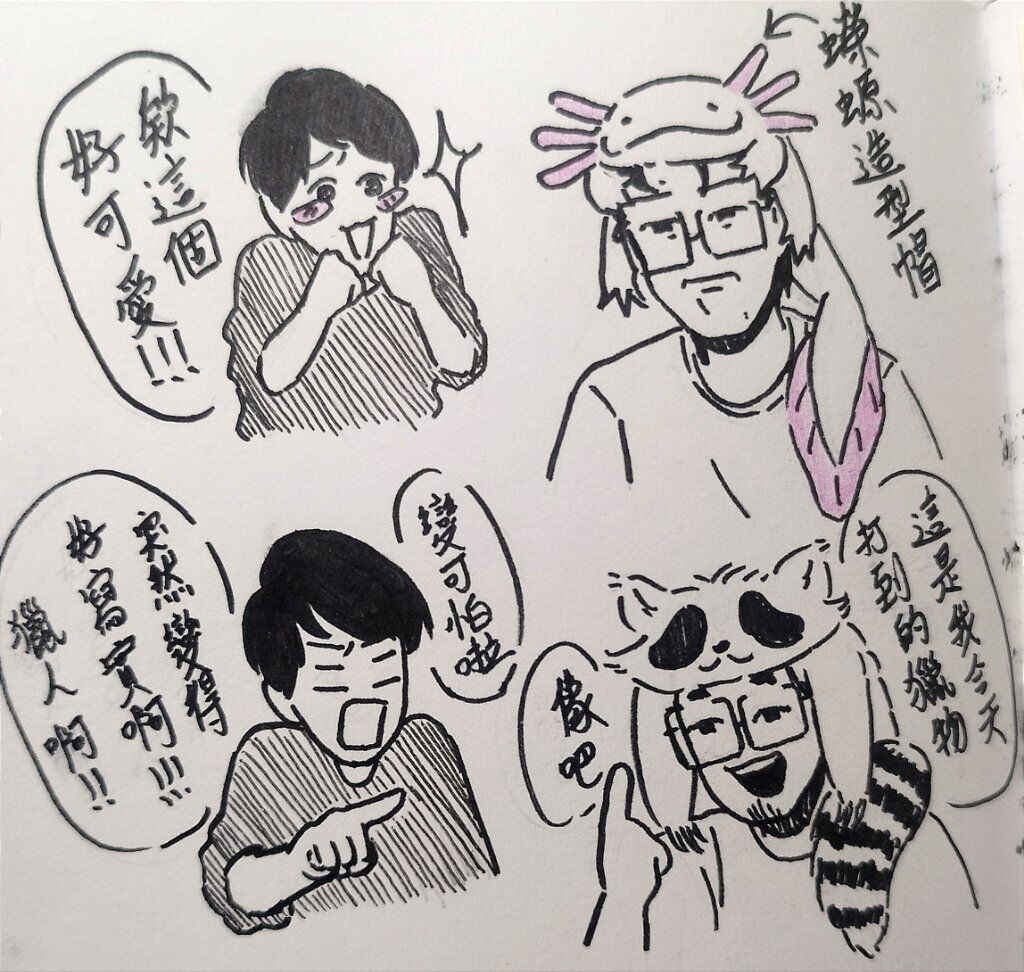 蠑螈造型帽
欸這個
好可愛!!!
這是我今天
打到的獵物
像吧
變可怕啦
突然變得
好寫實啊!!!
獵人啊!!